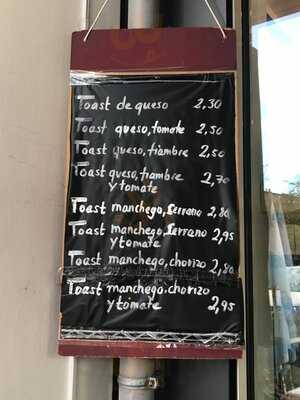 Toast de queso 2,30
Toast queso, tomate 2,50
Toast queso, fiambre 2,50
Toast queso, fiambre 2,70
y tomate
Toast manchego, serrano 2,80
Toast manchego, serrano 2,95
y tomate
Toast manchego, chorizo 2,80
Toast manchego, chorizo
y tomate 2,95